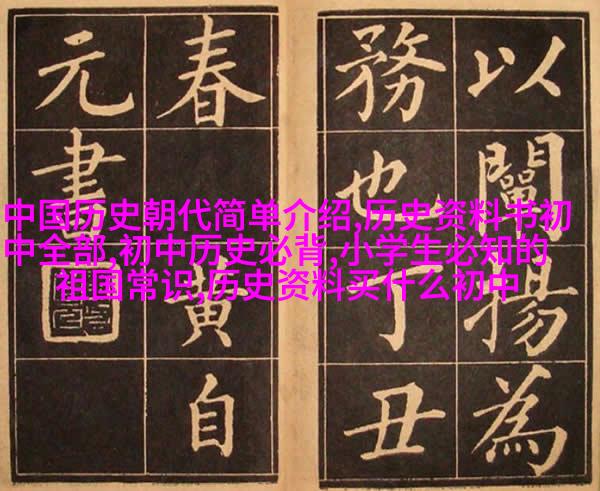 以闡揚為
務也丁丑
春黃自
元書
中国历史朝代简单介绍,历史资料书初
中全部,初中历史必背,小学生必知的
祖国常识,历史资料买什么初中